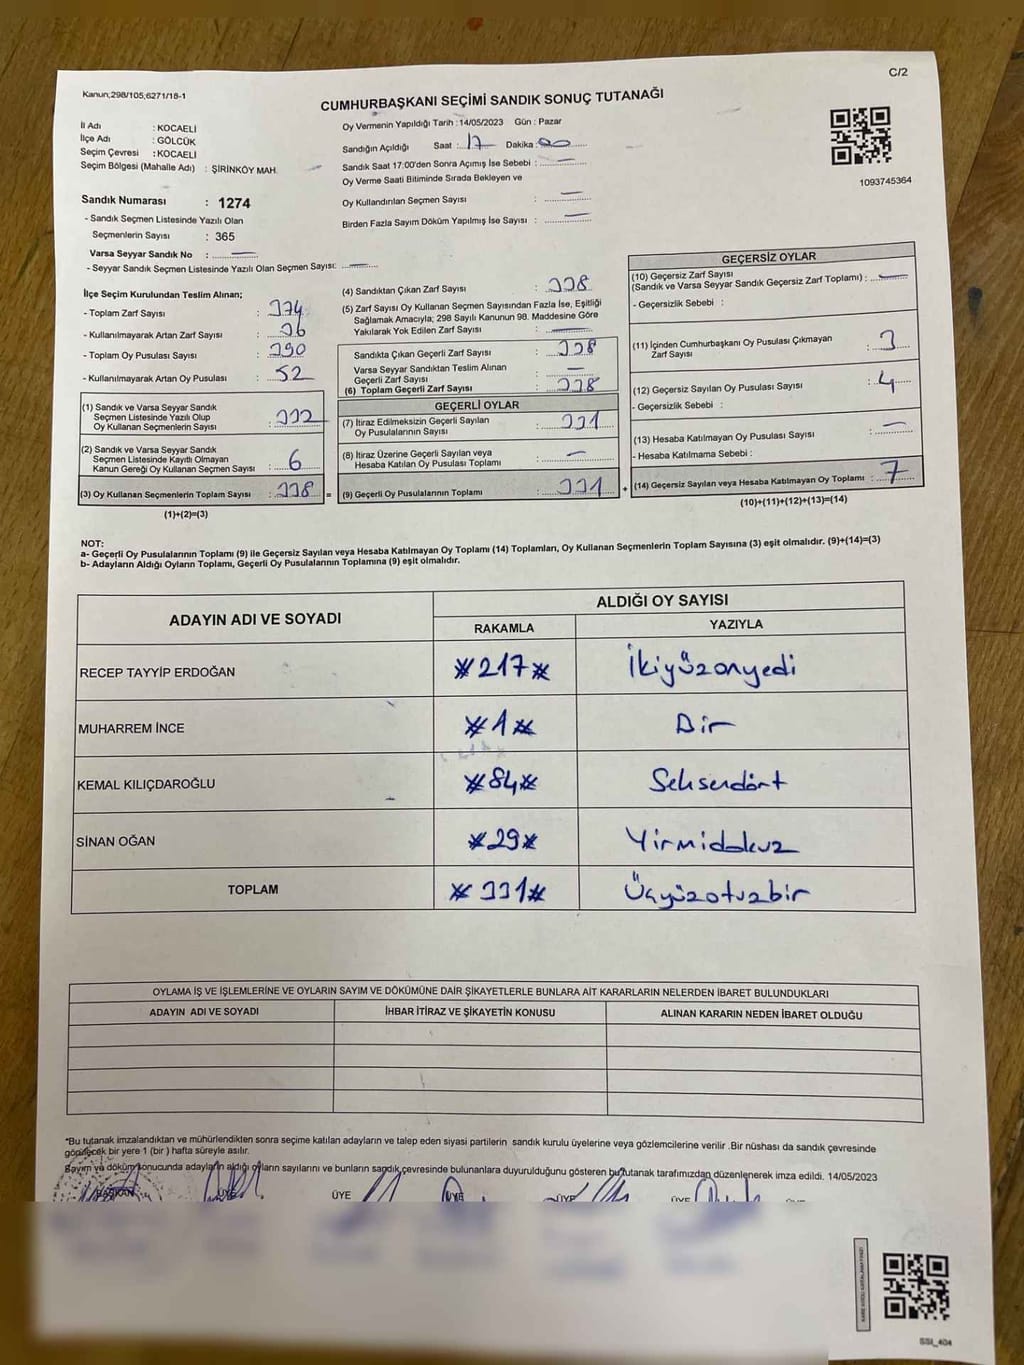 C/2
Kanun;298/105;6271/18-1
CUMHURBAŞKANI SEÇİMİ SANDIK SONUÇ TUTANAĞI
İl Adı : KOCAELİ
İlçe Adı : GÖLCÜK
Seçim Çevresi : KOCAELİ
Seçim Bölgesi (Mahalle Adı) : ŞİRİNKÖY MAH.
Oy Vermenin Yapıldığı Tarih :14/05/2023 Gün : Pazar
Sandığın Açıldığı Saat : 17 Dakika : 00
Sandık Saat 17:00'den Sonra Açımış İse Sebebi : —
Oy Verme Saati Bitiminde Sırada Bekleyen ve
Oy Kullandırılan Seçmen Sayısı : —
Birden Fazla Sayım Döküm Yapılmış İse Sayısı : —
1093745364
Sandık Numarası : 1274
- Sandık Seçmen Listesinde Yazılı Olan
Seçmenlerin Sayısı : 365
Varsa Seyyar Sandık No : —
- Seyyar Sandık Seçmen Listesinde Yazılı Olan Seçmen Sayısı: —
İlçe Seçim Kurulundan Teslim Alınan;
- Toplam Zarf Sayısı : 374
- Kullanılmayarak Artan Zarf Sayısı : 36
- Toplam Oy Pusulası Sayısı : 390
- Kullanılmayarak Artan Oy Pusulası : 52
(1) Sandık ve Varsa Seyyar Sandık
Seçmen Listesinde Yazılı Olup
Oy Kullanan Seçmenlerin Sayısı : 332
(2) Sandık ve Varsa Seyyar Sandık
Seçmen Listesinde Kayıtlı Olmayan
Kanun Gereği Oy Kullanan Seçmen Sayısı : 6
(3) Oy Kullanan Seçmenlerin Toplam Sayısı : 338 =
(1)+(2)=(3)
(4) Sandıktan Çıkan Zarf Sayısı : 338
(5) Zarf Sayısı Oy Kullanan Seçmen Sayısından Fazla İse, Eşitliği
Sağlamak Amacıyla; 298 Sayılı Kanunun 98. Maddesine Göre
Yakılarak Yok Edilen Zarf Sayısı : —
Sandıkta Çıkan Geçerli Zarf Sayısı : 338
Varsa Seyyar Sandıktan Teslim Alınan
Geçerli Zarf Sayısı : —
(6) Toplam Geçerli Zarf Sayısı : 338
GEÇERLİ OYLAR
(7) İtiraz Edilmeksizin Geçerli Sayılan
Oy Pusulalarının Sayısı : 331
(8) İtiraz Üzerine Geçerli Sayılan veya
Hesaba Katılan Oy Pusulası Toplamı : —
(9) Geçerli Oy Pusulalarının Toplamı : 331 +
GEÇERSİZ OYLAR
(10) Geçersiz Zarf Sayısı
(Sandık ve Varsa Seyyar Sandık Geçersiz Zarf Toplamı) : —
- Geçersizlik Sebebi :
(11) İçinden Cumhurbaşkanı Oy Pusulası Çıkmayan
Zarf Sayısı : 3
(12) Geçersiz Sayılan Oy Pusulası Sayısı : 4
- Geçersizlik Sebebi :
(13) Hesaba Katılmayan Oy Pusulası Sayısı : —
- Hesaba Katılmama Sebebi :
(14) Geçersiz Sayılan veya Hesaba Katılmayan Oy Toplamı : 7
(10)+(11)+(12)+(13)=(14)
NOT:
a- Geçerli Oy Pusulalarının Toplamı (9) ile Geçersiz Sayılan veya Hesaba Katılmayan Oy Toplamı (14) Toplamları, Oy Kullanan Seçmenlerin Toplam Sayısına (3) eşit olmalıdır. (9)+(14)=(3)
b- Adayların Aldığı Oyların Toplamı, Geçerli Oy Pusulalarının Toplamına (9) eşit olmalıdır.
ADAYIN ADI VE SOYADI ALDIĞI OY SAYISI
RAKAMLA YAZIYLA
RECEP TAYYİP ERDOĞAN *217* İkiyüzonyedi
MUHARREM İNCE *1* Bir
KEMAL KILIÇDAROĞLU *84* Seksendört
SİNAN OĞAN *29* Yirmidokuz
TOPLAM *331* Üçyüzotuzbir
OYLAMA İŞ VE İŞLEMLERİNE VE OYLARIN SAYIM VE DÖKÜMÜNE DAİR ŞİKAYETLERLE BUNLARA AİT KARARLARIN NELERDEN İBARET BULUNDUKLARI
ADAYIN ADI VE SOYADI İHBAR İTİRAZ VE ŞİKAYETİN KONUSU ALINAN KARARIN NEDEN İBARET OLDUĞU
*Bu tutanak imzalandıktan ve mühürlendikten sonra seçime katılan adayların ve talep eden siyasi partilerin sandık kurulu üyelerine veya gözlemcilerine verilir .Bir nüshası da sandık çevresinde
görülecek bir yere 1 (bir ) hafta süreyle asılır.
Sayım ve döküm sonucunda adayların aldığı oyların sayılarını ve bunların sandık çevresinde bulunanlara duyurulduğunu gösteren bu tutanak tarafımızdan düzenlenerek imza edildi. 14/05/2023
BAŞKAN ÜYE ÜYE ÜYE ÜYE ÜYE
SSI_404